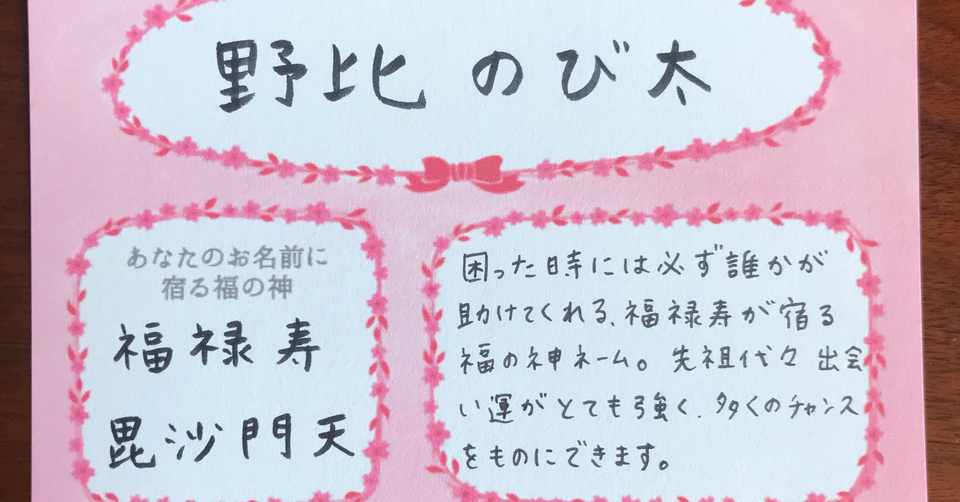 野比 のび太
あなたのお名前に
宿る福の神
福禄寿
毘沙門天
困った時には必ず誰かが
助けてくれる、福禄寿が宿る
福の神ネーム。先祖代々出会
い運がとても強く、多くのチャンス
をものにできます。